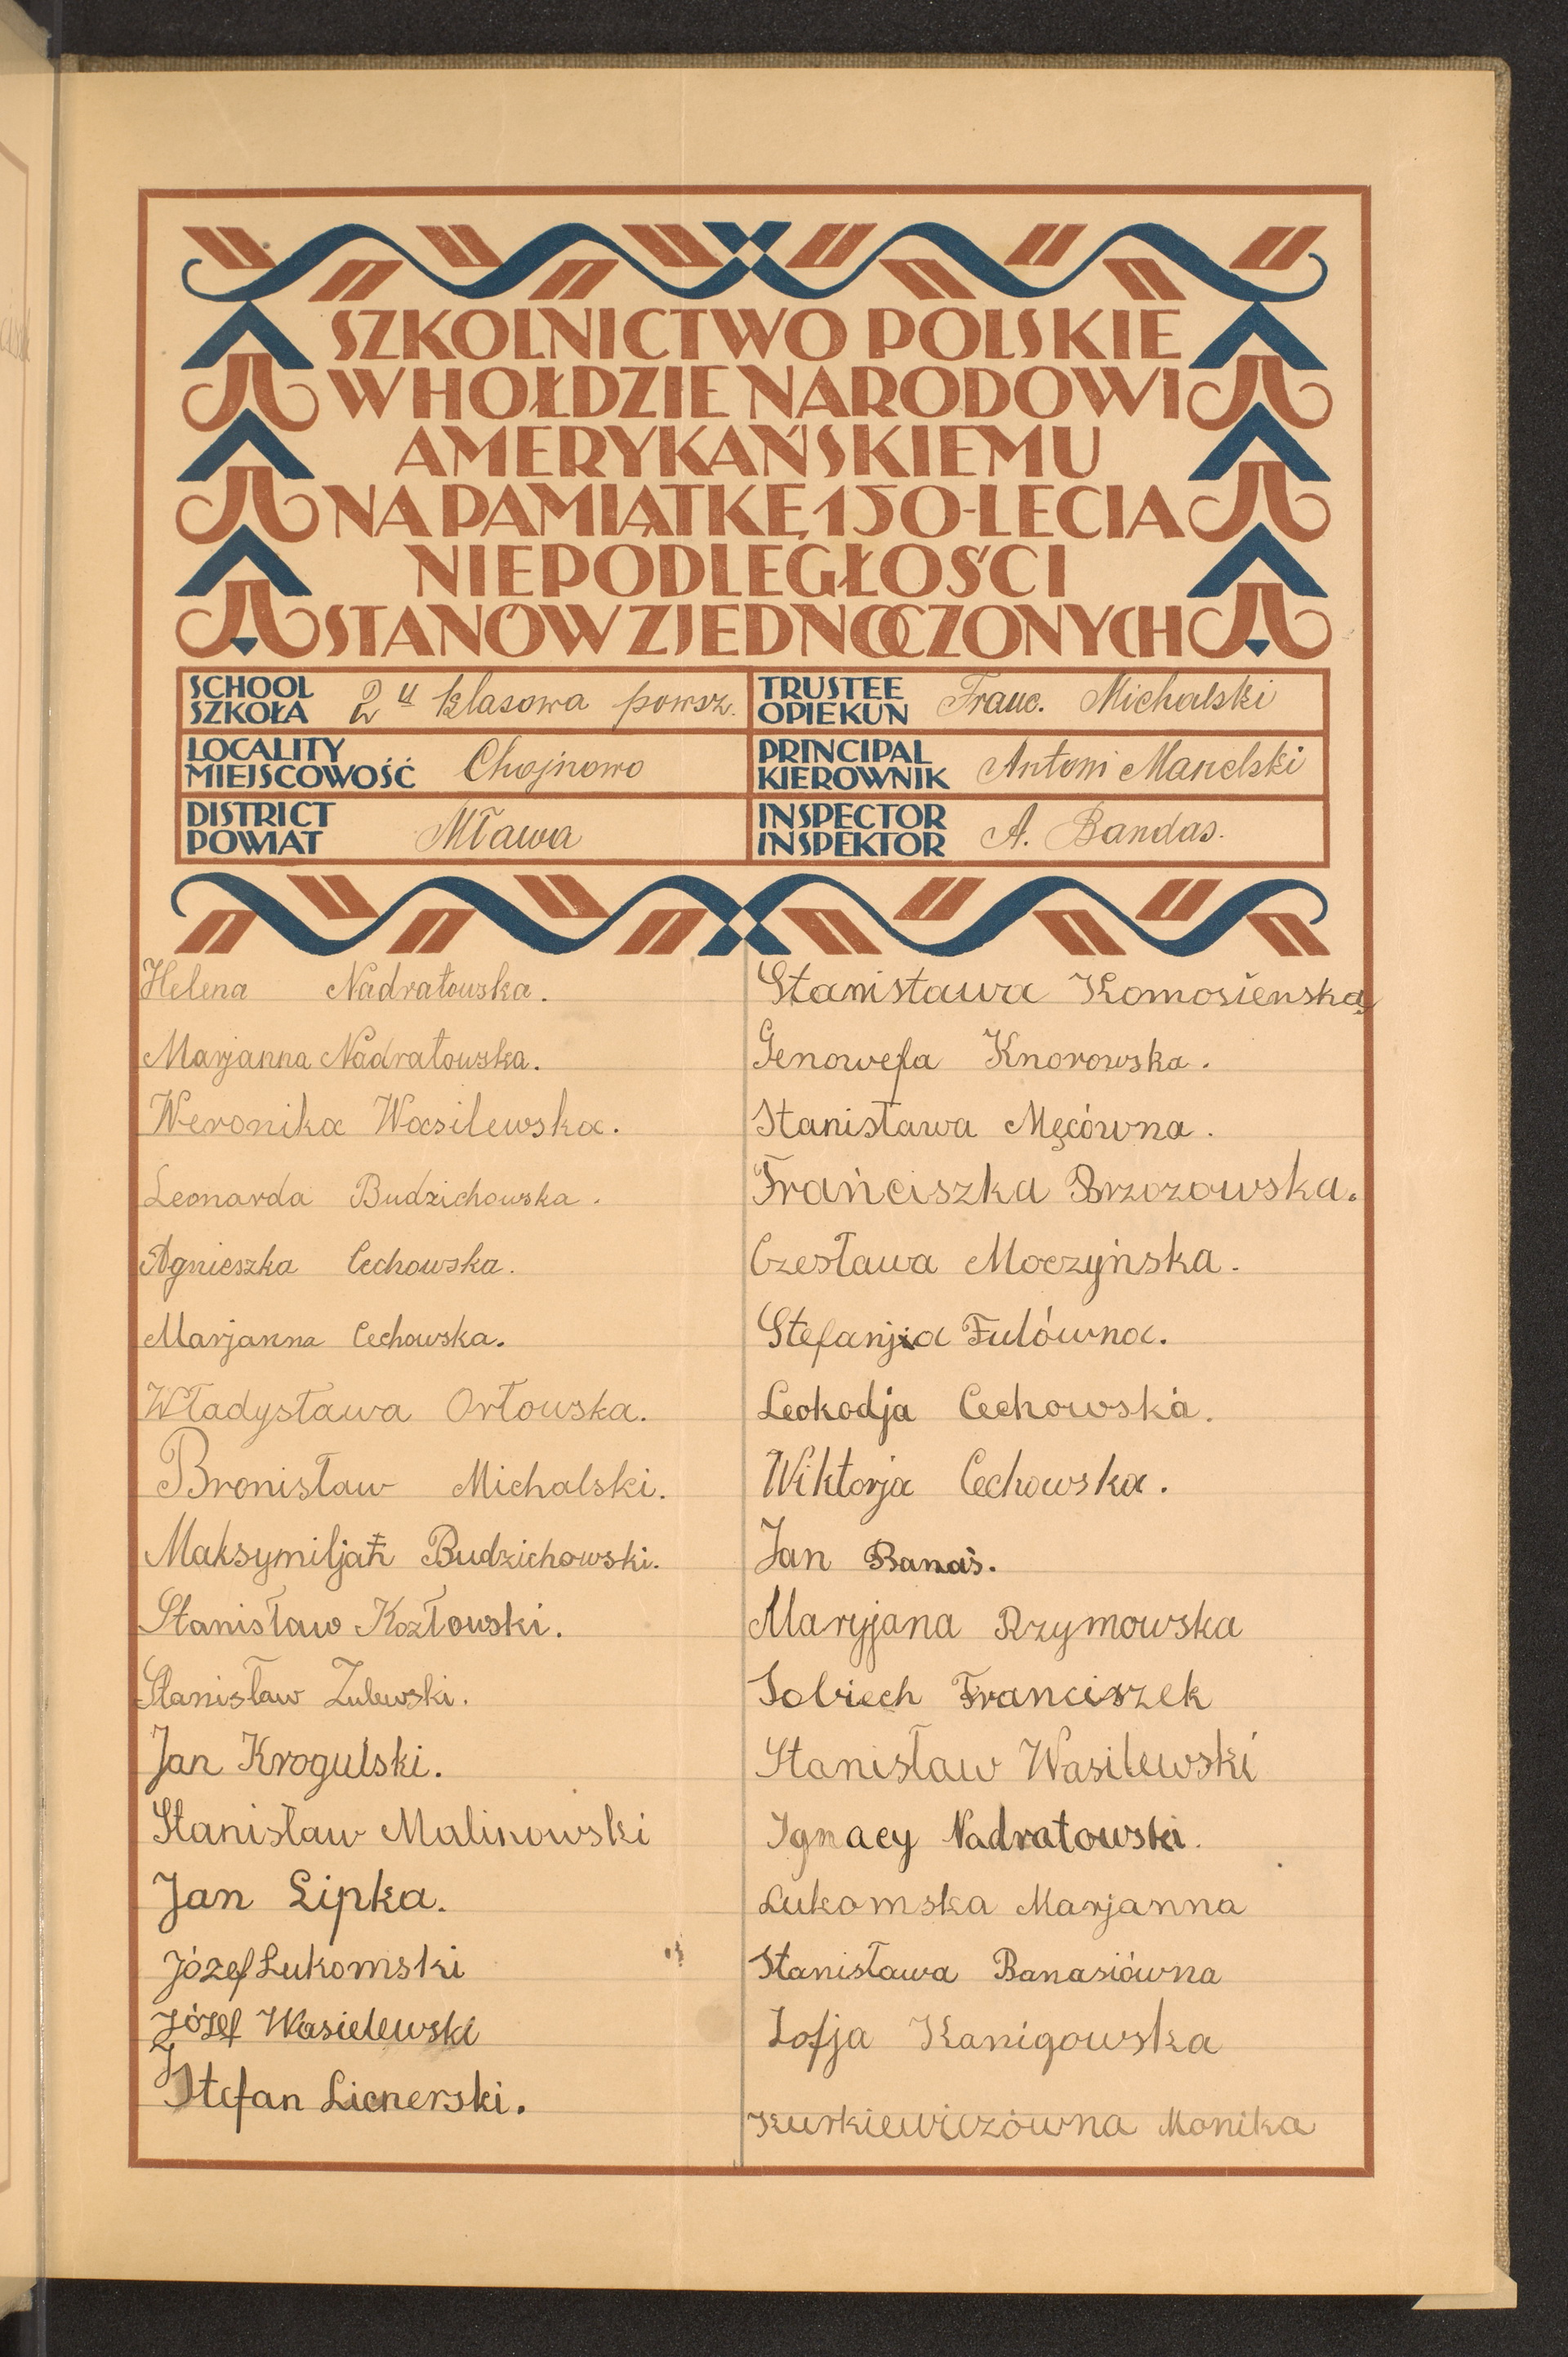 SZKOLNICTWO POLSKIE
W HOŁDZIE NARODOWI
AMERYKAŃSKIEMU
NA PAMIĄTKĘ 150-LECIA
NIEPODLEGŁOŚCI
STANÓW ZJEDNOCZONYCH
SCHOOL SZKOŁA 2 u klasowa powsz.
TRUSTEE OPIEKUN Franc. Michalski
LOCALITY MIEJSCOWOŚĆ Chojnowo
PRINCIPAL KIEROWNIK Antoni Marcelski
DISTRICT POWIAT Mława
INSPECTOR INSPEKTOR A. Bandas.
Helena Nadratowska.
Marjanna Nadratowska.
Weronika Wasilewska.
Leonarda Budzichowska.
Agnieszka Cechowska.
Marjanna Cechowska.
Władysława Orłowska.
Bronisław Michalski.
Maksymiljan Budzichowski.
Stanisław Kozłowski.
Stanisław Zulewski.
Jan Krogulski.
Stanisław Malinowski
Jan Lipka.
Józef Lukomski
Józef Wasielewski
Stefan Licnerski.
Stanisława Komosienska
Genowefa Knorowska.
Stanisława Męcówna.
Frańciszka Brzozowska.
Czesława Moczyńska.
Stefanja Fulówna.
Leokodja Cechowska.
Wiktorja Cechowska.
Jan Banaś.
Maryjana Rzymowska
Sobiech Franciszek
Stanisław Wasilewski
Ignacy Nadratowski.
Lukomska Marjanna
Stanisława Banasiówna
Zofja Kanigowska
Kurkiewiczówna Monika